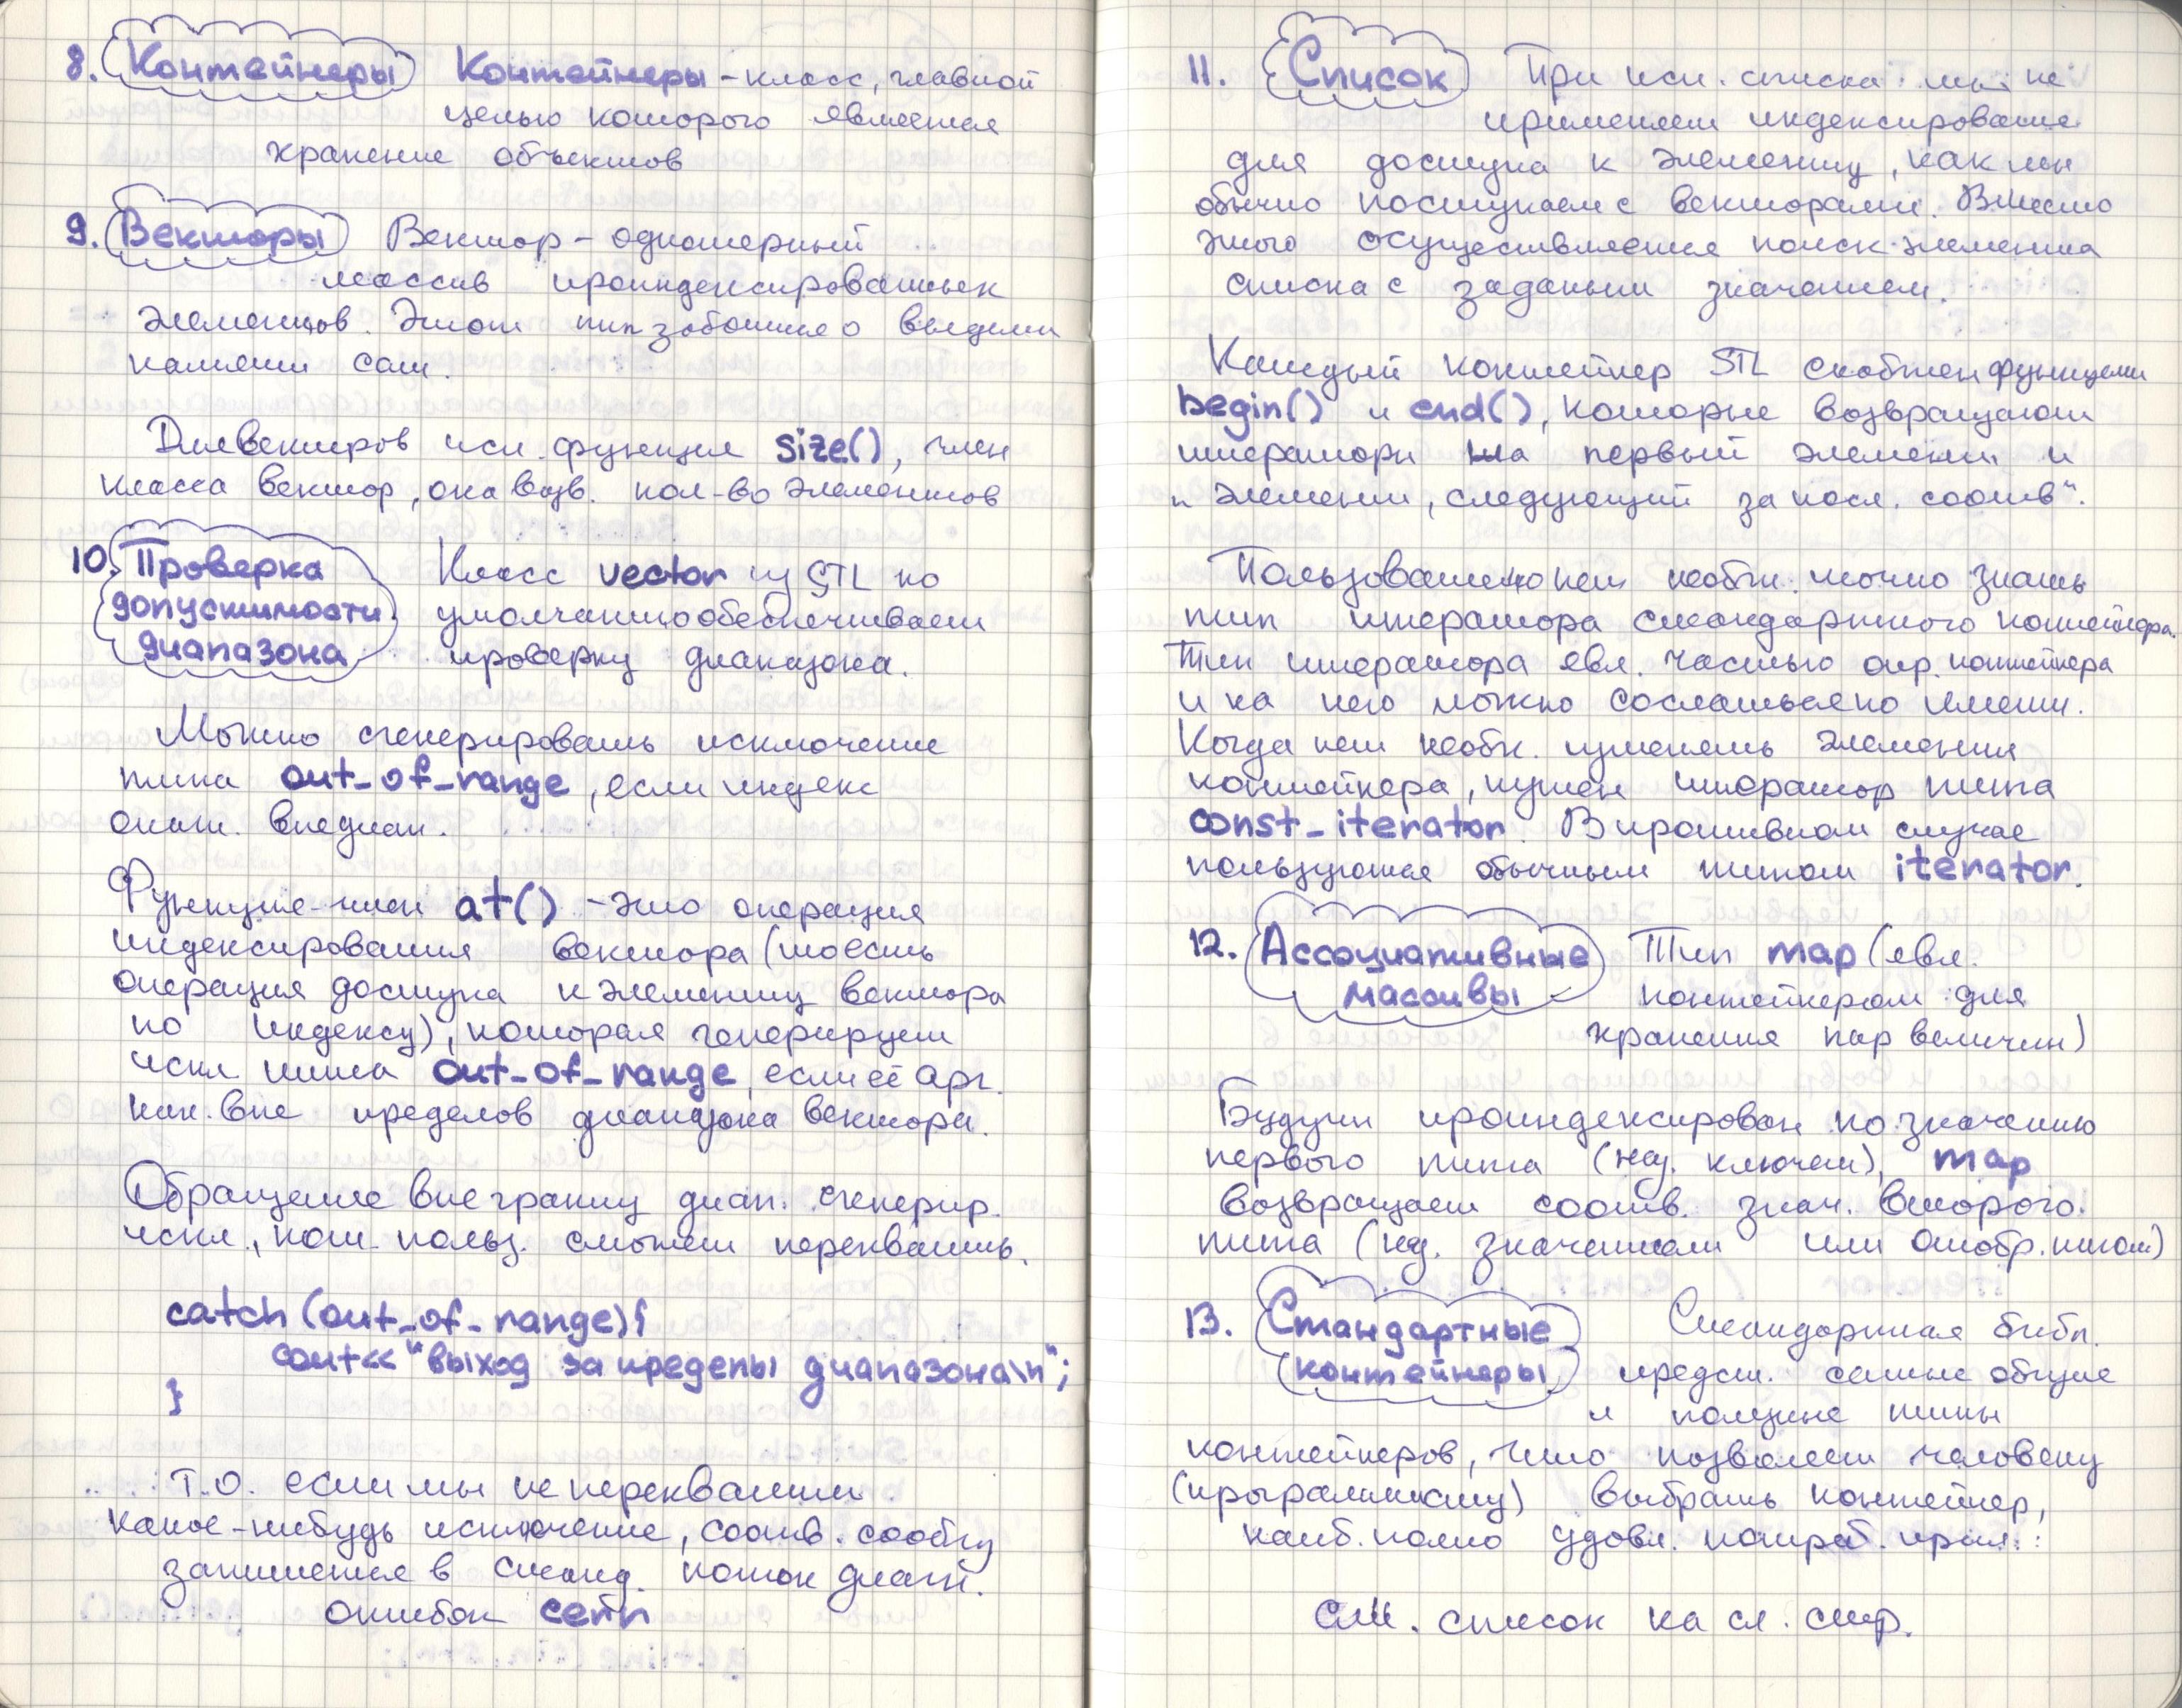 8. Контейнеры Контейнеры - класс, главной
целью которого является
хранение объектов
9. Векторы Вектор - одномерный
массив проиндексированных
элементов. Этот тип заботится о выделении
памяти сам.
Для векторов исп. функция size(), член
класса вектор, она возв. кол-во элементов
10. Проверка допустимости диапазона Класс vector из STL по
умолчанию обеспечивает
проверку диапазона.
Можно сгенерировать исключение
типа out_of_range, если индекс
окаж. вне диап.
Функция-член at() - это операция
индексирования вектора (то есть
операция доступа к элементу вектора
по индексу), которая генерирует
искл. типа out_of_range, если её арг.
нах. вне пределов диапазона вектора.
Обращение вне границ диап. сгенерир.
искл., кот. польз. сможет перехватить.
catch (out_of_range){
cout<< "выход за пределы диапазона\n";
}
Т.О. если мы не перехватим
какое-нибудь исключение, соотв. сообщ
запишется в станд. поток диагн.
ошибок cerr
11. Список При исп. списка мы не
применяем индексирование
для доступа к элементу, как мы
обычно поступаем с векторами. Вместо
этого осуществляется поиск элемента
списка с заданым значением.
Каждый контейнер STL снабжен функциями
begin() и end(), которые возвращают
итераторы на первый элемент и
"элемент, следующий за посл. соотв".
Пользователю нет необх. точно знать
тип итератора стандартного контейнера.
Тип итератора явл. частью опр. контейнера
и на него можно сослаться по имени.
Когда нет необх. изменять элементы
контейнера, нужен итератор типа
const_iterator. В противном случае
пользуются обычным типом iterator.
12. Ассоциативные массивы Тип map (явл.
контейнером для
хранения пар величин)
Будучи проиндексирован по значению
первого типа (наз. ключем), map
возвращает соотв. знач. второго
типа (наз. значением или отобр. типом)
13. Стандартные контейнеры Стандартная библ.
предст. самые общие
и полезные типы
контейнеров, что позволяет человеку
(програмисту) выбрать контейнер,
наиб. полно удовл. потреб. прил.:
см. список на сл. стр.